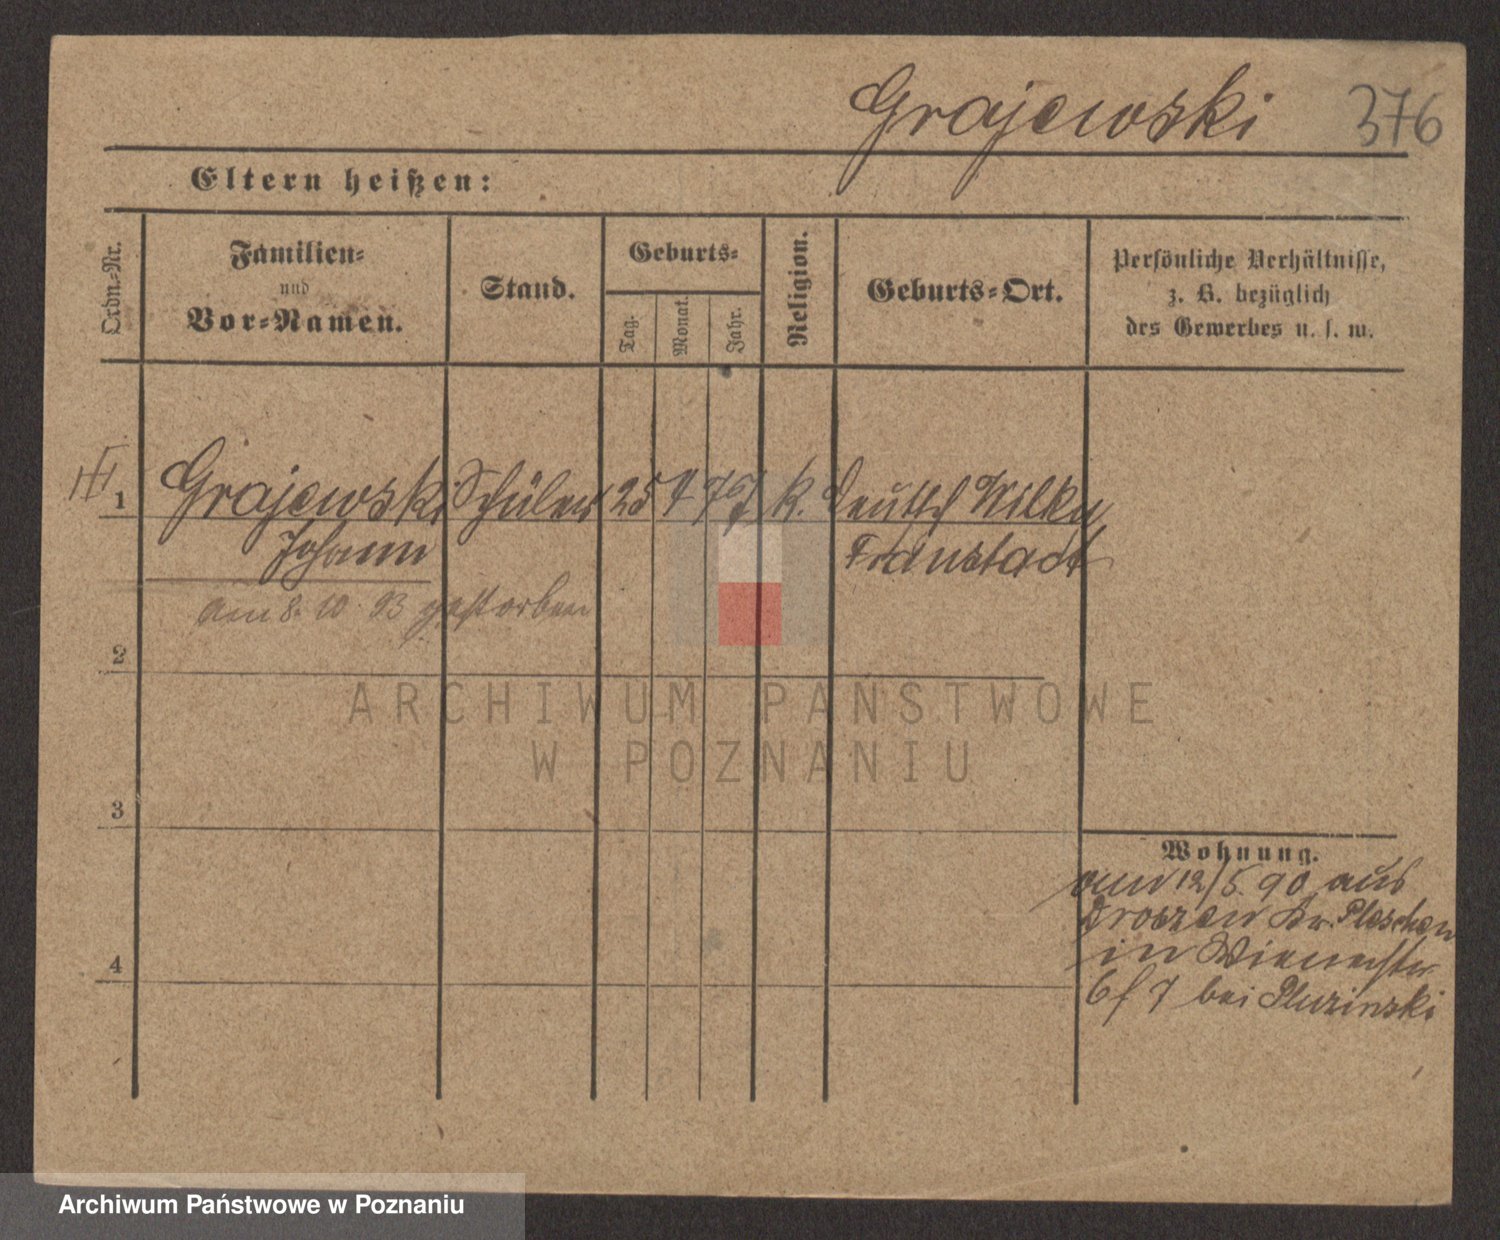 Grajewski 376
Eltern heißen:
Ordn.-Nr.
Familien-
und
Vor-Namen.
Stand.
Geburts-
Tag.
Monat.
Jahr.
Religion.
Geburts-Ort.
Persönliche Verhältnisse,
z. B. bezüglich
des Gewerbes u. s. w.
1 Grajewski Schüler 25 7 77 k. Deutsch Wilke
Johann Fraustadt
am 8. 10. 93 gestorben
2
ARCHIWUM PAŃSTWOWE
W POZNANIU
3
Wohnung.
am 12/5. 90 aus
Droszew Kr. Pleschen
in
4
6 f 7 bei Pluzinski
Archiwum Państwowe w Poznaniu